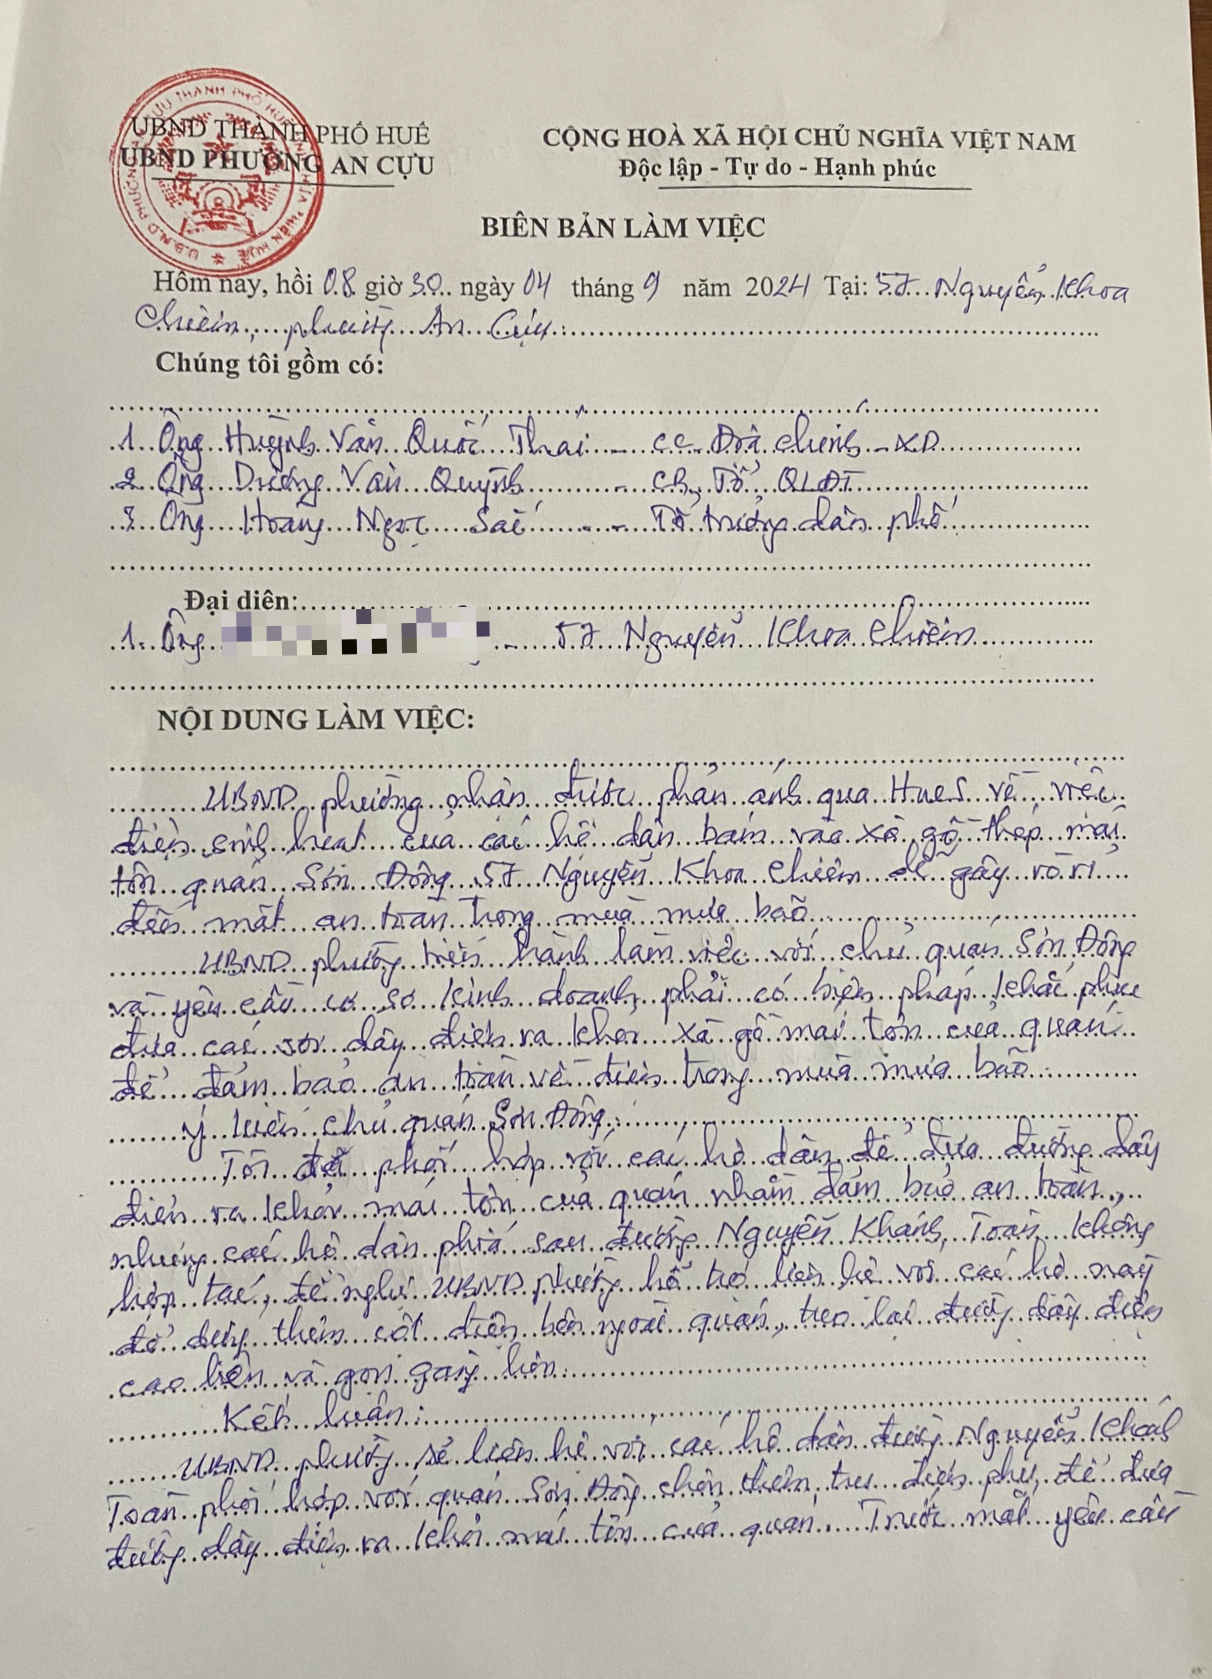 UBND THÀNH PHỐ HUẾ
UBND PHƯỜNG AN CỰU
CỘNG HOÀ XÃ HỘI CHỦ NGHĨA VIỆT NAM
Độc lập - Tự do - Hạnh phúc
BIÊN BẢN LÀM VIỆC
Hôm nay, hồi 08 giờ 30 ngày 04 tháng 9 năm 2024 Tại: 57 Nguyễn Khoa
Chiêm, phường An Cựu.
Chúng tôi gồm có:
1. Ông Huỳnh Văn Quốc Thái - CC. Địa chính - XD
2. Ông Dương Văn Quỳnh - CB, Tổ QLĐT
3. Ông Hoàng Ngọc - Tổ trưởng dân phố
Đại diên:
1. Ông - 57 Nguyễn Khoa Chiêm
NỘI DUNG LÀM VIỆC:
UBND phường nhận được phản ánh qua HueS về việc
điện sinh hoạt của các hộ dân bám vào xà gồ thép mái
tôn quán Sơn Đông 57 Nguyễn Khoa Chiêm dễ gây rò rỉ
điện mất an toàn trong mùa mưa bão
UBND phường tiến hành làm việc với chủ quán Sơn Đông
và yêu cầu cơ sở kinh doanh phải có biện pháp khắc phục
đưa các sợi dây điện ra khỏi xà gồ mái tôn của quán
để đảm bảo an toàn về điện trong mùa mưa bão.
Ý kiến chủ quán Sơn Đông:
Tôi đã phối hợp với các hộ dân để đưa đường dây
điện ra khỏi mái tôn của quán nhằm đảm bảo an toàn,
nhưng các hộ dân phía sau đường Nguyễn Khánh Toàn không
hợp tác, đề nghị UBND phường hỗ trợ liên hệ với các hộ này
để dựng thêm cột điện bên ngoài quán, treo lại đường dây điện
cao lên và gọn gàng hơn.
Kết luận:
UBND phường sẽ liên hệ với các hộ dân đường Nguyễn Khánh
Toàn phối hợp với quán Sơn Đông chôn thêm trụ điện phụ, để đưa
đường dây điện ra khỏi mái tôn của quán. Trước mắt yêu cầu